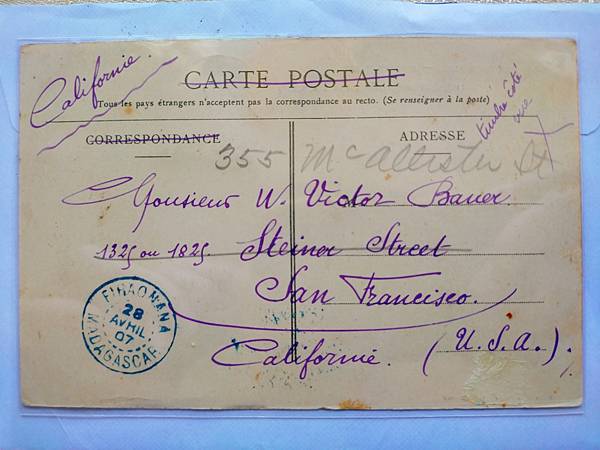 Californie.
CARTE POSTALE
Tous les pays étrangers n'acceptent pas la correspondance au recto. (Se renseigner à la poste)
timbre côté
vue
CORRESPONDANCE
ADRESSE
355 McAllister St
Monsieur W. Victor Bauer.
1325 ou 1825. Steiner Street
San Francisco.
Californie. (U.S.A.).
FIHAONANA
28
AVRIL
07
MADAGASCAR